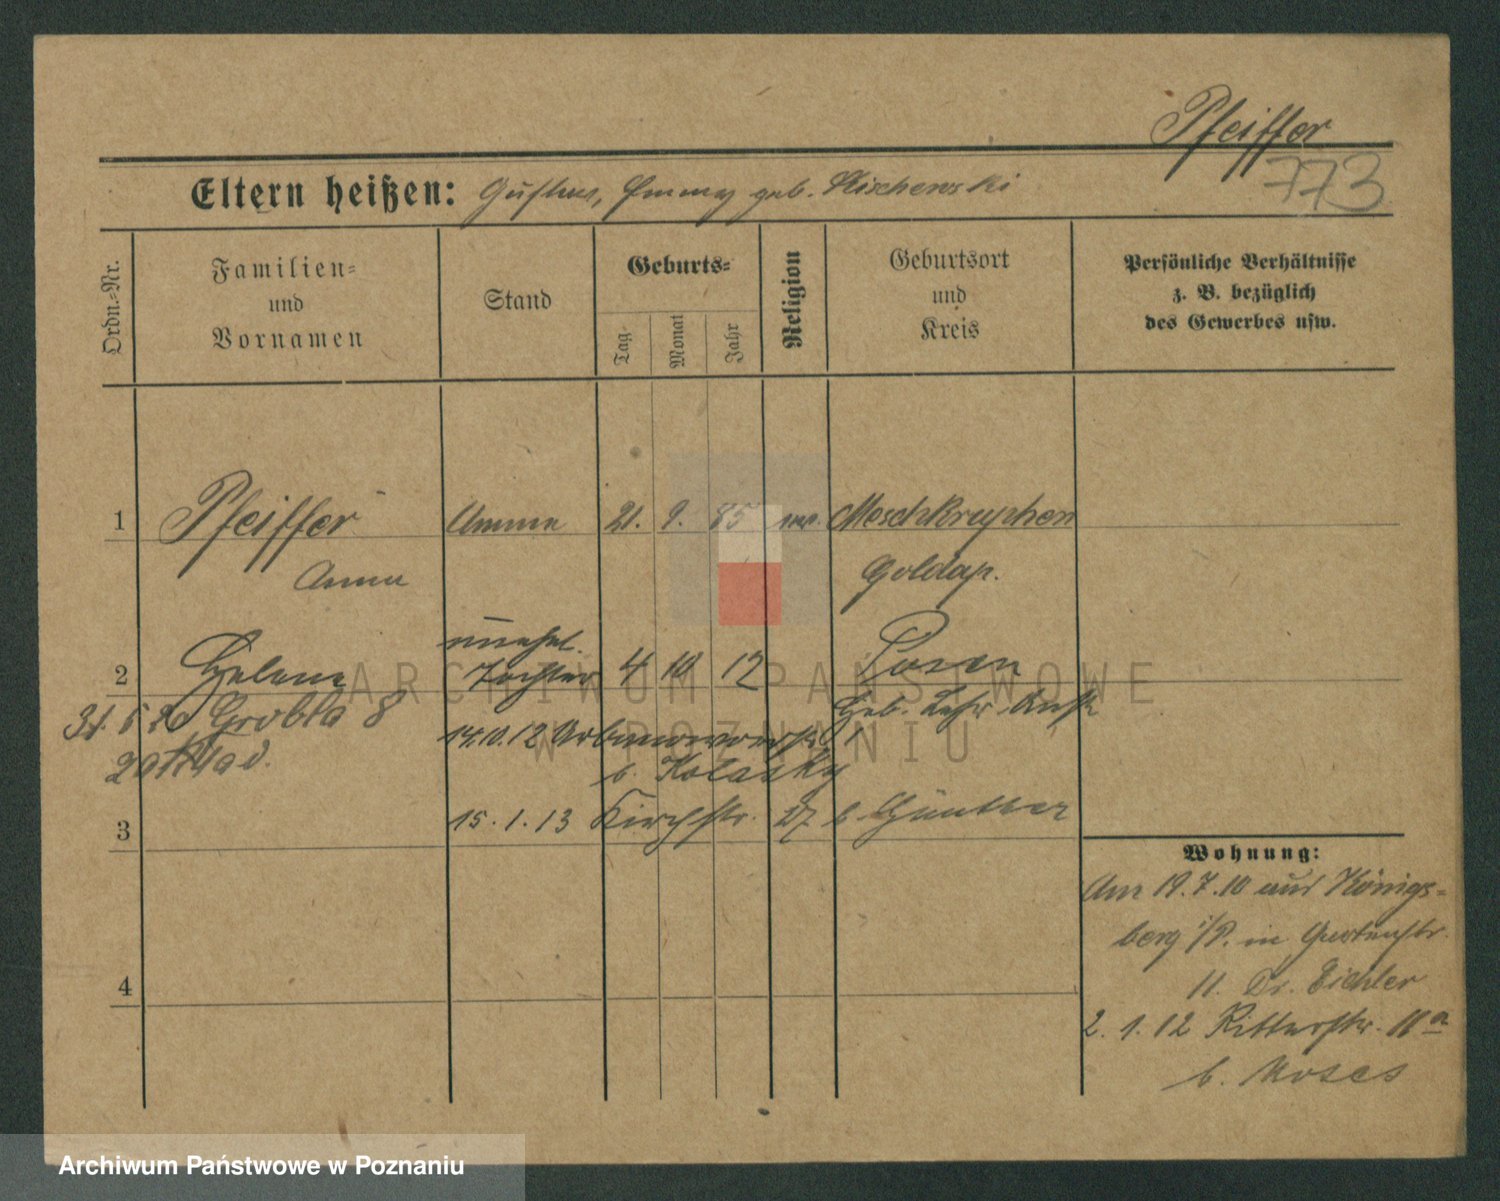 Pfeiffer
773
Eltern heißen: Gustav, Emmy geb.
Ordn.-Nr.
Familien-
und
Vornamen
Stand
Geburts-
Tag
Monat
Jahr
Religion
Geburtsort
und
Kreis
Persönliche Verhältnisse
z. B. bezüglich
des Gewerbes usw.
1 Pfeiffer Amme 21. 9. 85 Meschkrupchen
Anna Goldap.
unehel.
2 Helene Tochter 4 10 12 Posen
31. 5 20 Grobla 8 Geb.
14.10.12
b.
3 15. 1. 13 Kirchstr. 27 b Günther
4
Wohnung:
Am 19.7.10 aus Königs-
berg i/P. in Gartenstr.
11. Dr. Eichler
2. 1. 12 Ritterstr. 11a
b. Moses
ARCHIWUM PAŃSTWOWE
W POZNANIU
Archiwum Państwowe w Poznaniu